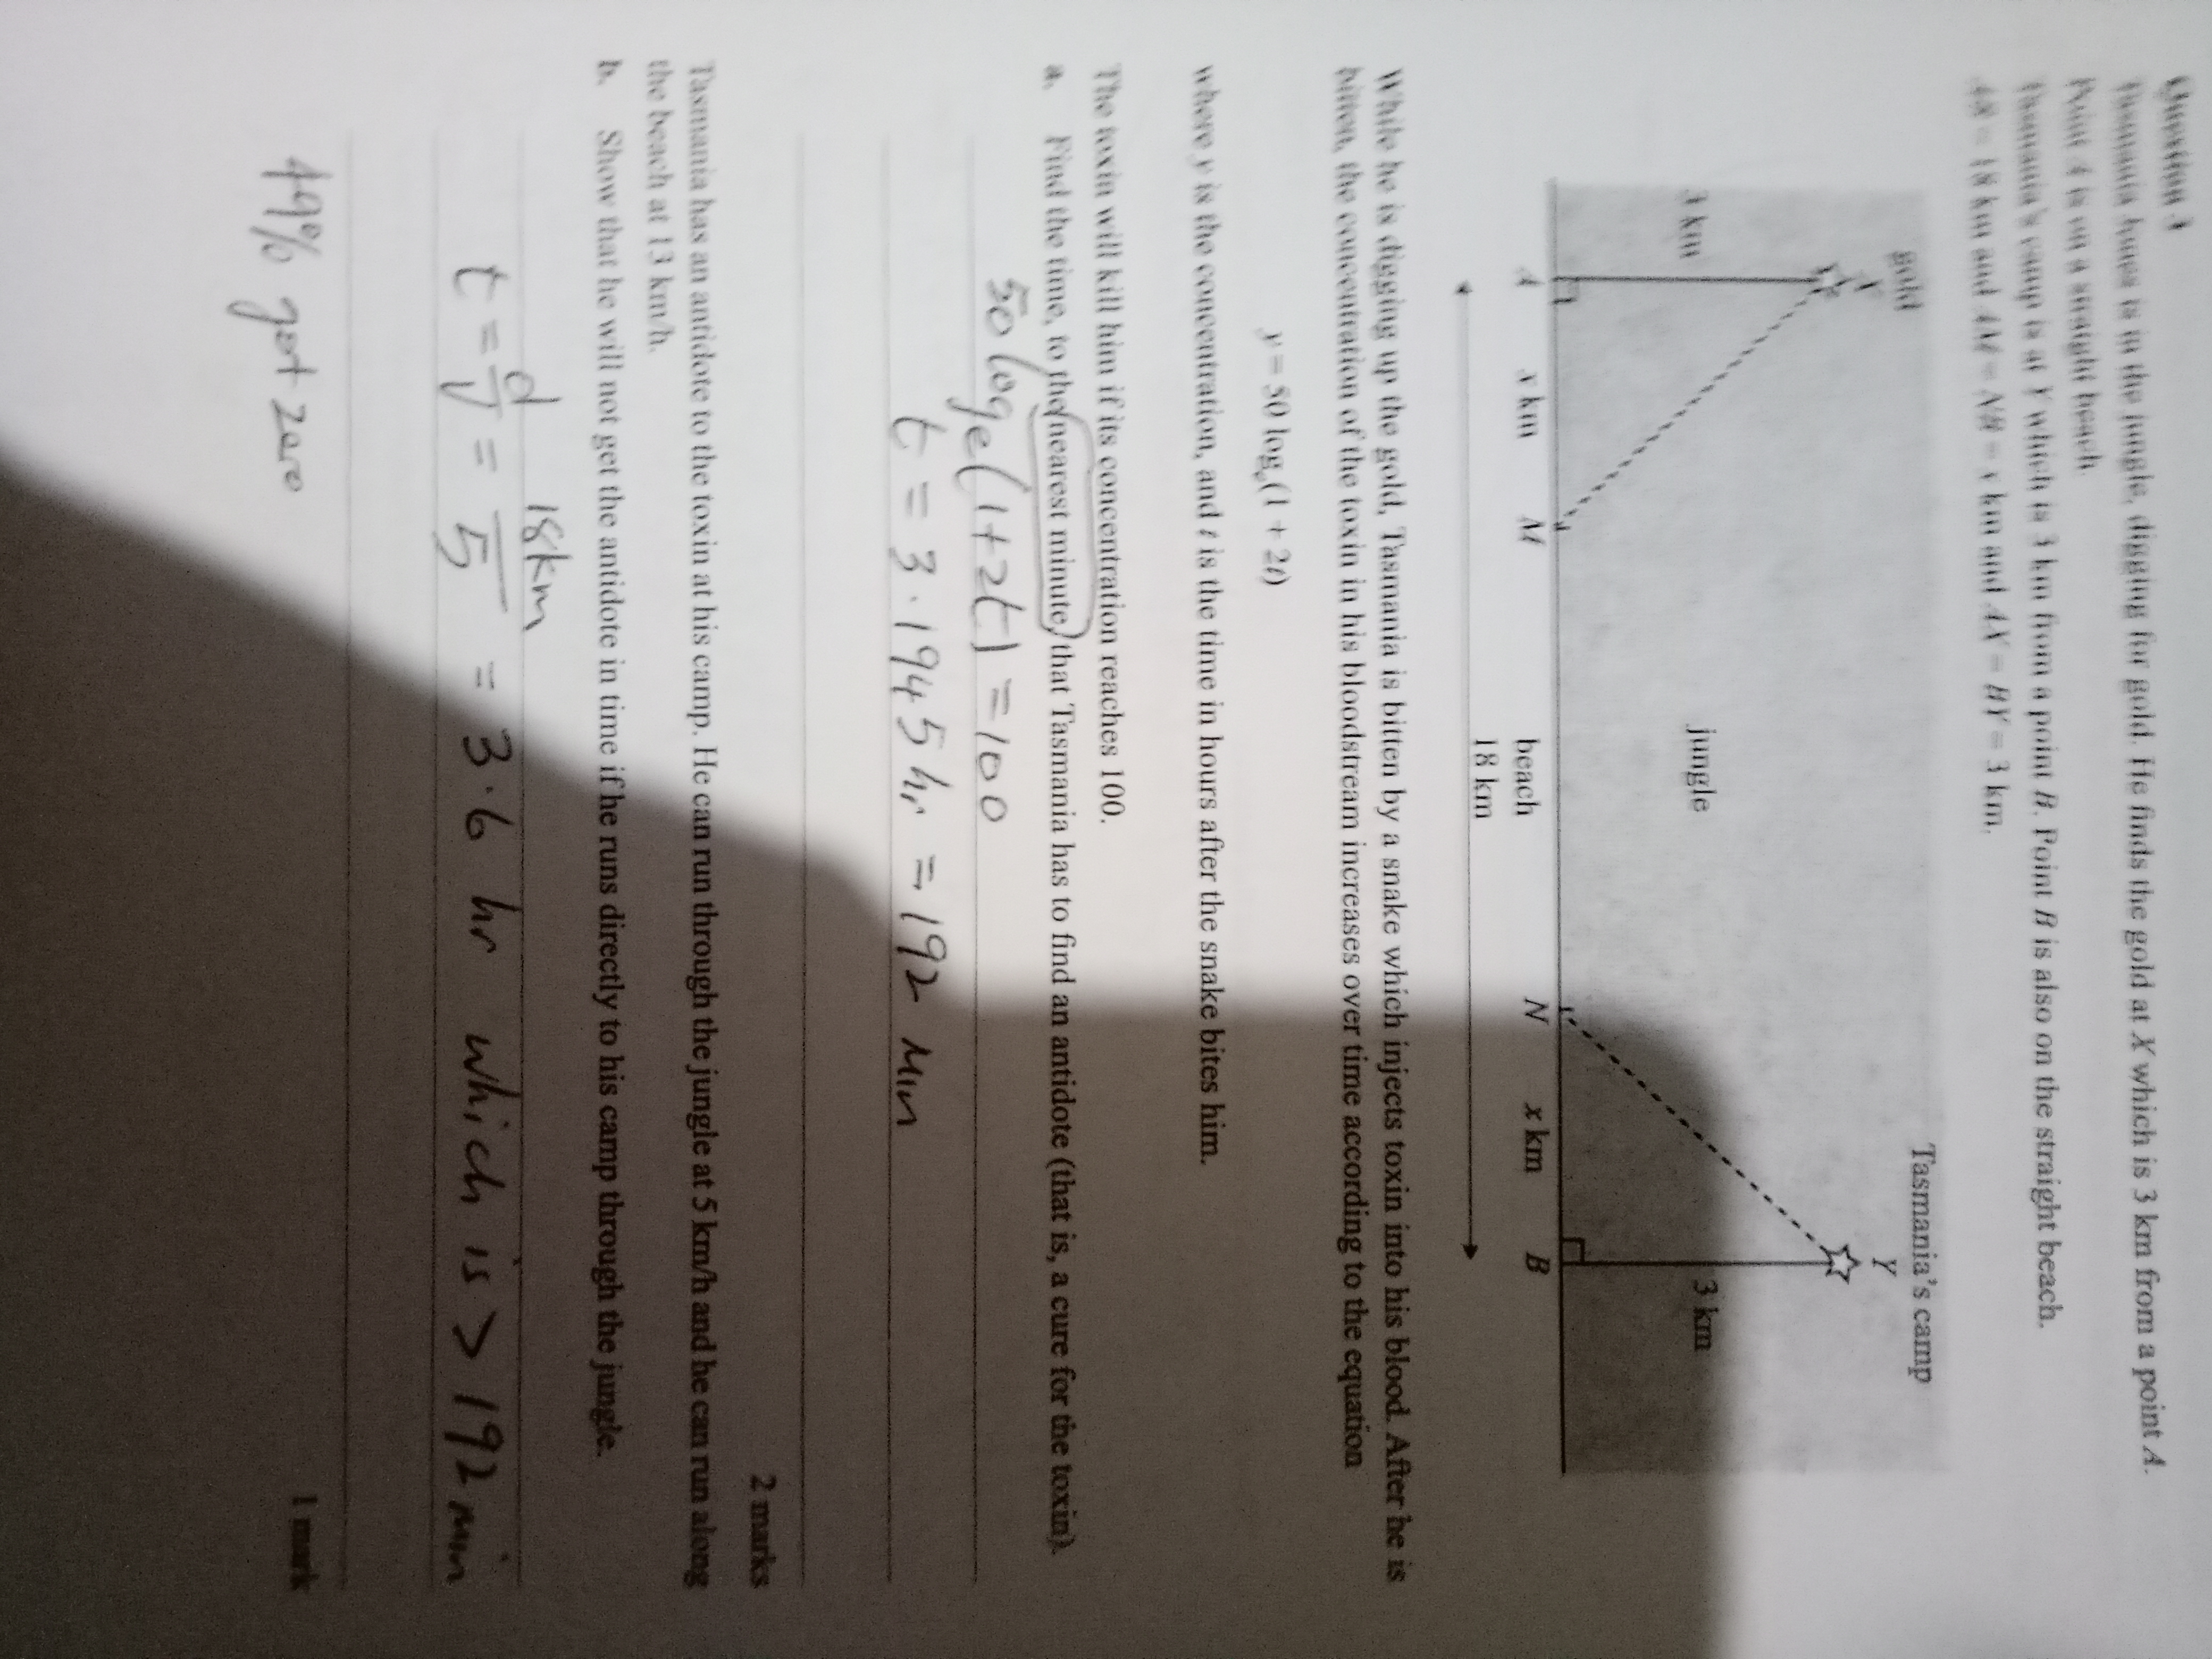 Question 3
Tasmania Jones is in the jungle, digging for gold. He finds the gold at X which is 3 km from a point A.
Point A is on a straight beach.
Tasmania's camp is at Y which is 3 km from a point B. Point B is also on the straight beach.
AB = 18 km and AM = NB = x km and AX = BY = 3 km.
Tasmania's camp
gold
X
Y
3 km
jungle
3 km
A
x km
M
beach
N
x km
B
18 km
While he is digging up the gold, Tasmania is bitten by a snake which injects toxin into his blood. After he is
bitten, the concentration of the toxin in his bloodstream increases over time according to the equation
y = 50 logₑ(1 + 2t)
where y is the concentration, and t is the time in hours after the snake bites him.
The toxin will kill him if its concentration reaches 100.
a. Find the time, to the nearest minute, that Tasmania has to find an antidote (that is, a cure for the toxin).
50 logₑ(1+2t) = 100
t = 3.1945 hr = 192 min
2 marks
Tasmania has an antidote to the toxin at his camp. He can run through the jungle at 5 km/h and he can run along
the beach at 13 km/h.
b. Show that he will not get the antidote in time if he runs directly to his camp through the jungle.
t = d/v = 18km/5 = 3.6 hr which is > 192 min
1 mark
49% got zero